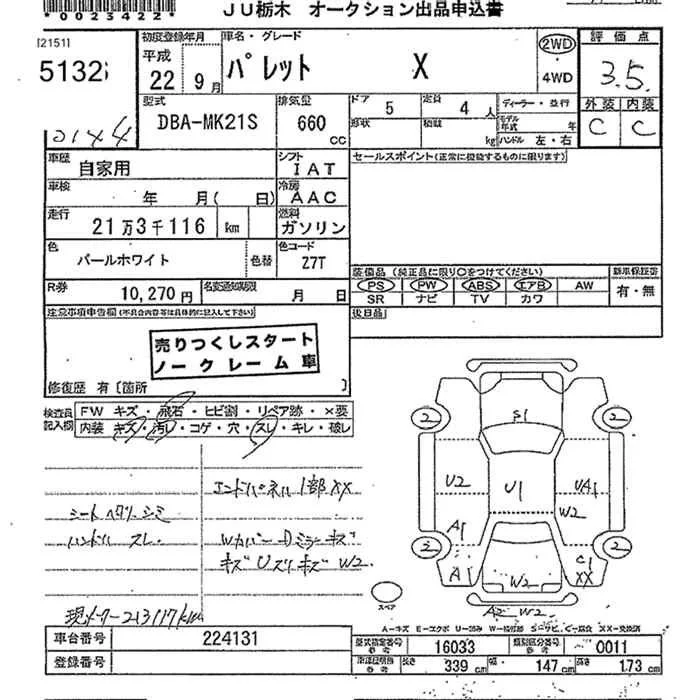 *0023422*
JU栃木 オークション出品申込書
[2151]
5132
初度登録年月
平成
22 9月
車名・グレード
パレット X
2WD
・
4WD
評価点
3.5
外装 内装
C C
2144
型式
DBA-MK21S
排気量
660
CC
ドア 5
定員 4 人
形状
積載 kg
ディーラー・並行
モデル年式 年
ハンドル 左・右
車歴
自家用
シフト
IAT
セールスポイント(正常に機能するものに限ります)
車検
年 月( 日)
冷房
AAC
走行
21万3千116 km
燃料
ガソリン
色
パールホワイト
色替
色コード
Z7T
装備品(純正品に限り○をつけてください)
新車保証書
PS PW ABS エアB AW
有・無
SR ナビ TV カワ
R券
10,270円
名変通知期限
月 日
後日品
注意事項申告欄(不具合内容等は具体的に記入して下さい)
売りつくしスタート
ノークレーム車
修復歴 有〔箇所 〕
検査員
記入欄
FW キズ・飛石・ヒビ割・リペア跡・×要
内装 キズ・汚レ・コゲ・穴・スレ・キレ・破レ
エンドパネル1部XX
シートヘタリ シミ
ハンドル スレ
WカバーDミラーキズ
キズUズリキズW2
現メーター213117km
S1
2 2
U2 U1 UA1
W2
A1
2 2
A C1
XX
W2
A2 W2
スペア
A-キズ E-エクボ U-凹み W-補修跡 S-サビ C-腐食 XX-交換済
車台番号 224131
登録番号
型式指定番号
参考
16033
類別区分番号
参考
0011
車検証明
参考
長さ 339 cm 幅 147 cm 高さ 173 cm